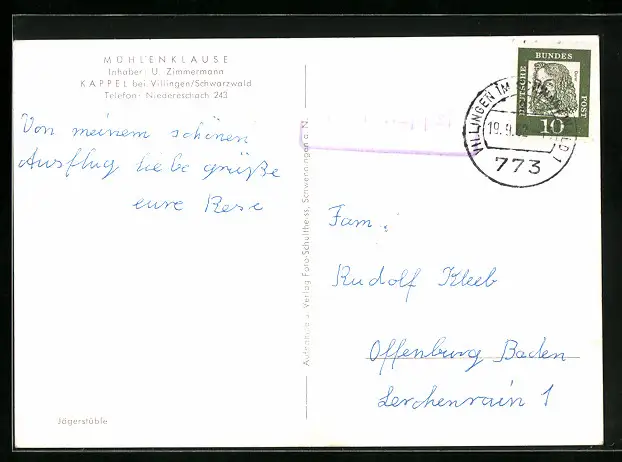 MÜHLENKLAUSE
Inhaber: U. Zimmermann
KAPPEL bei Villingen/Schwarzwald
Telefon: Niedereschach 243
Von meinem schönen
Ausflug liebe grüße
eure Rese
Jägerstüble
Aufnahme u. Verlag Foto-Schultheiss, Schwenningen a. N.
DEUTSCHE BUNDES POST
10
VILLINGEN IM
19. 9. 62
773
Fam.
Rudolf Kleeb
Offenburg Baden
Lerchenrain 1